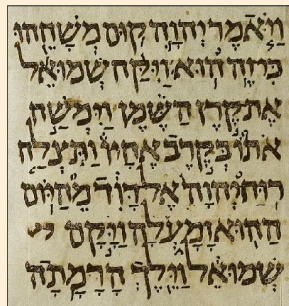 וַיֹּאמֶר יְהוָה קוּם מְשָׁחֵהוּ
כִּי זֶה הוּא וַיִּקַּח שְׁמוּאֵל
אֶת קֶרֶן הַשֶּׁמֶן וַיִּמְשַׁח
אֹתוֹ בְּקֶרֶב אֶחָיו וַתִּצְלַח
רוּחַ יְהוָה אֶל דָּוִד מֵהַיּוֹם
הַהוּא וָמָעְלָה וַיָּקָם
שְׁמוּאֵל וַיֵּלֶךְ הָרָמָתָה